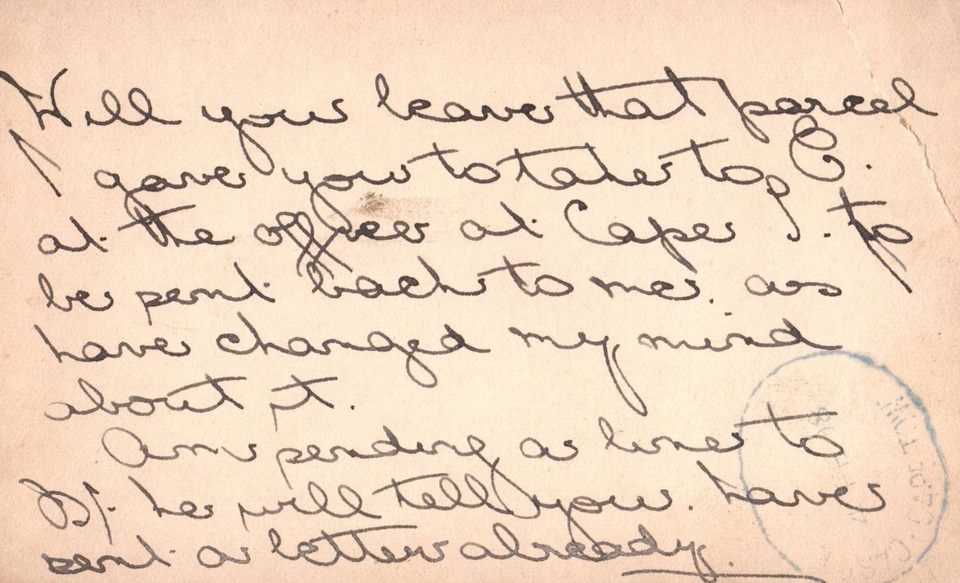 Will you leave that parcel
I gave you to take to C.
at the office at Cape J. to
be sent back to me. as
have changed my mind
about it.
Am sending a line to
he will tell you. have
sent a letter already.